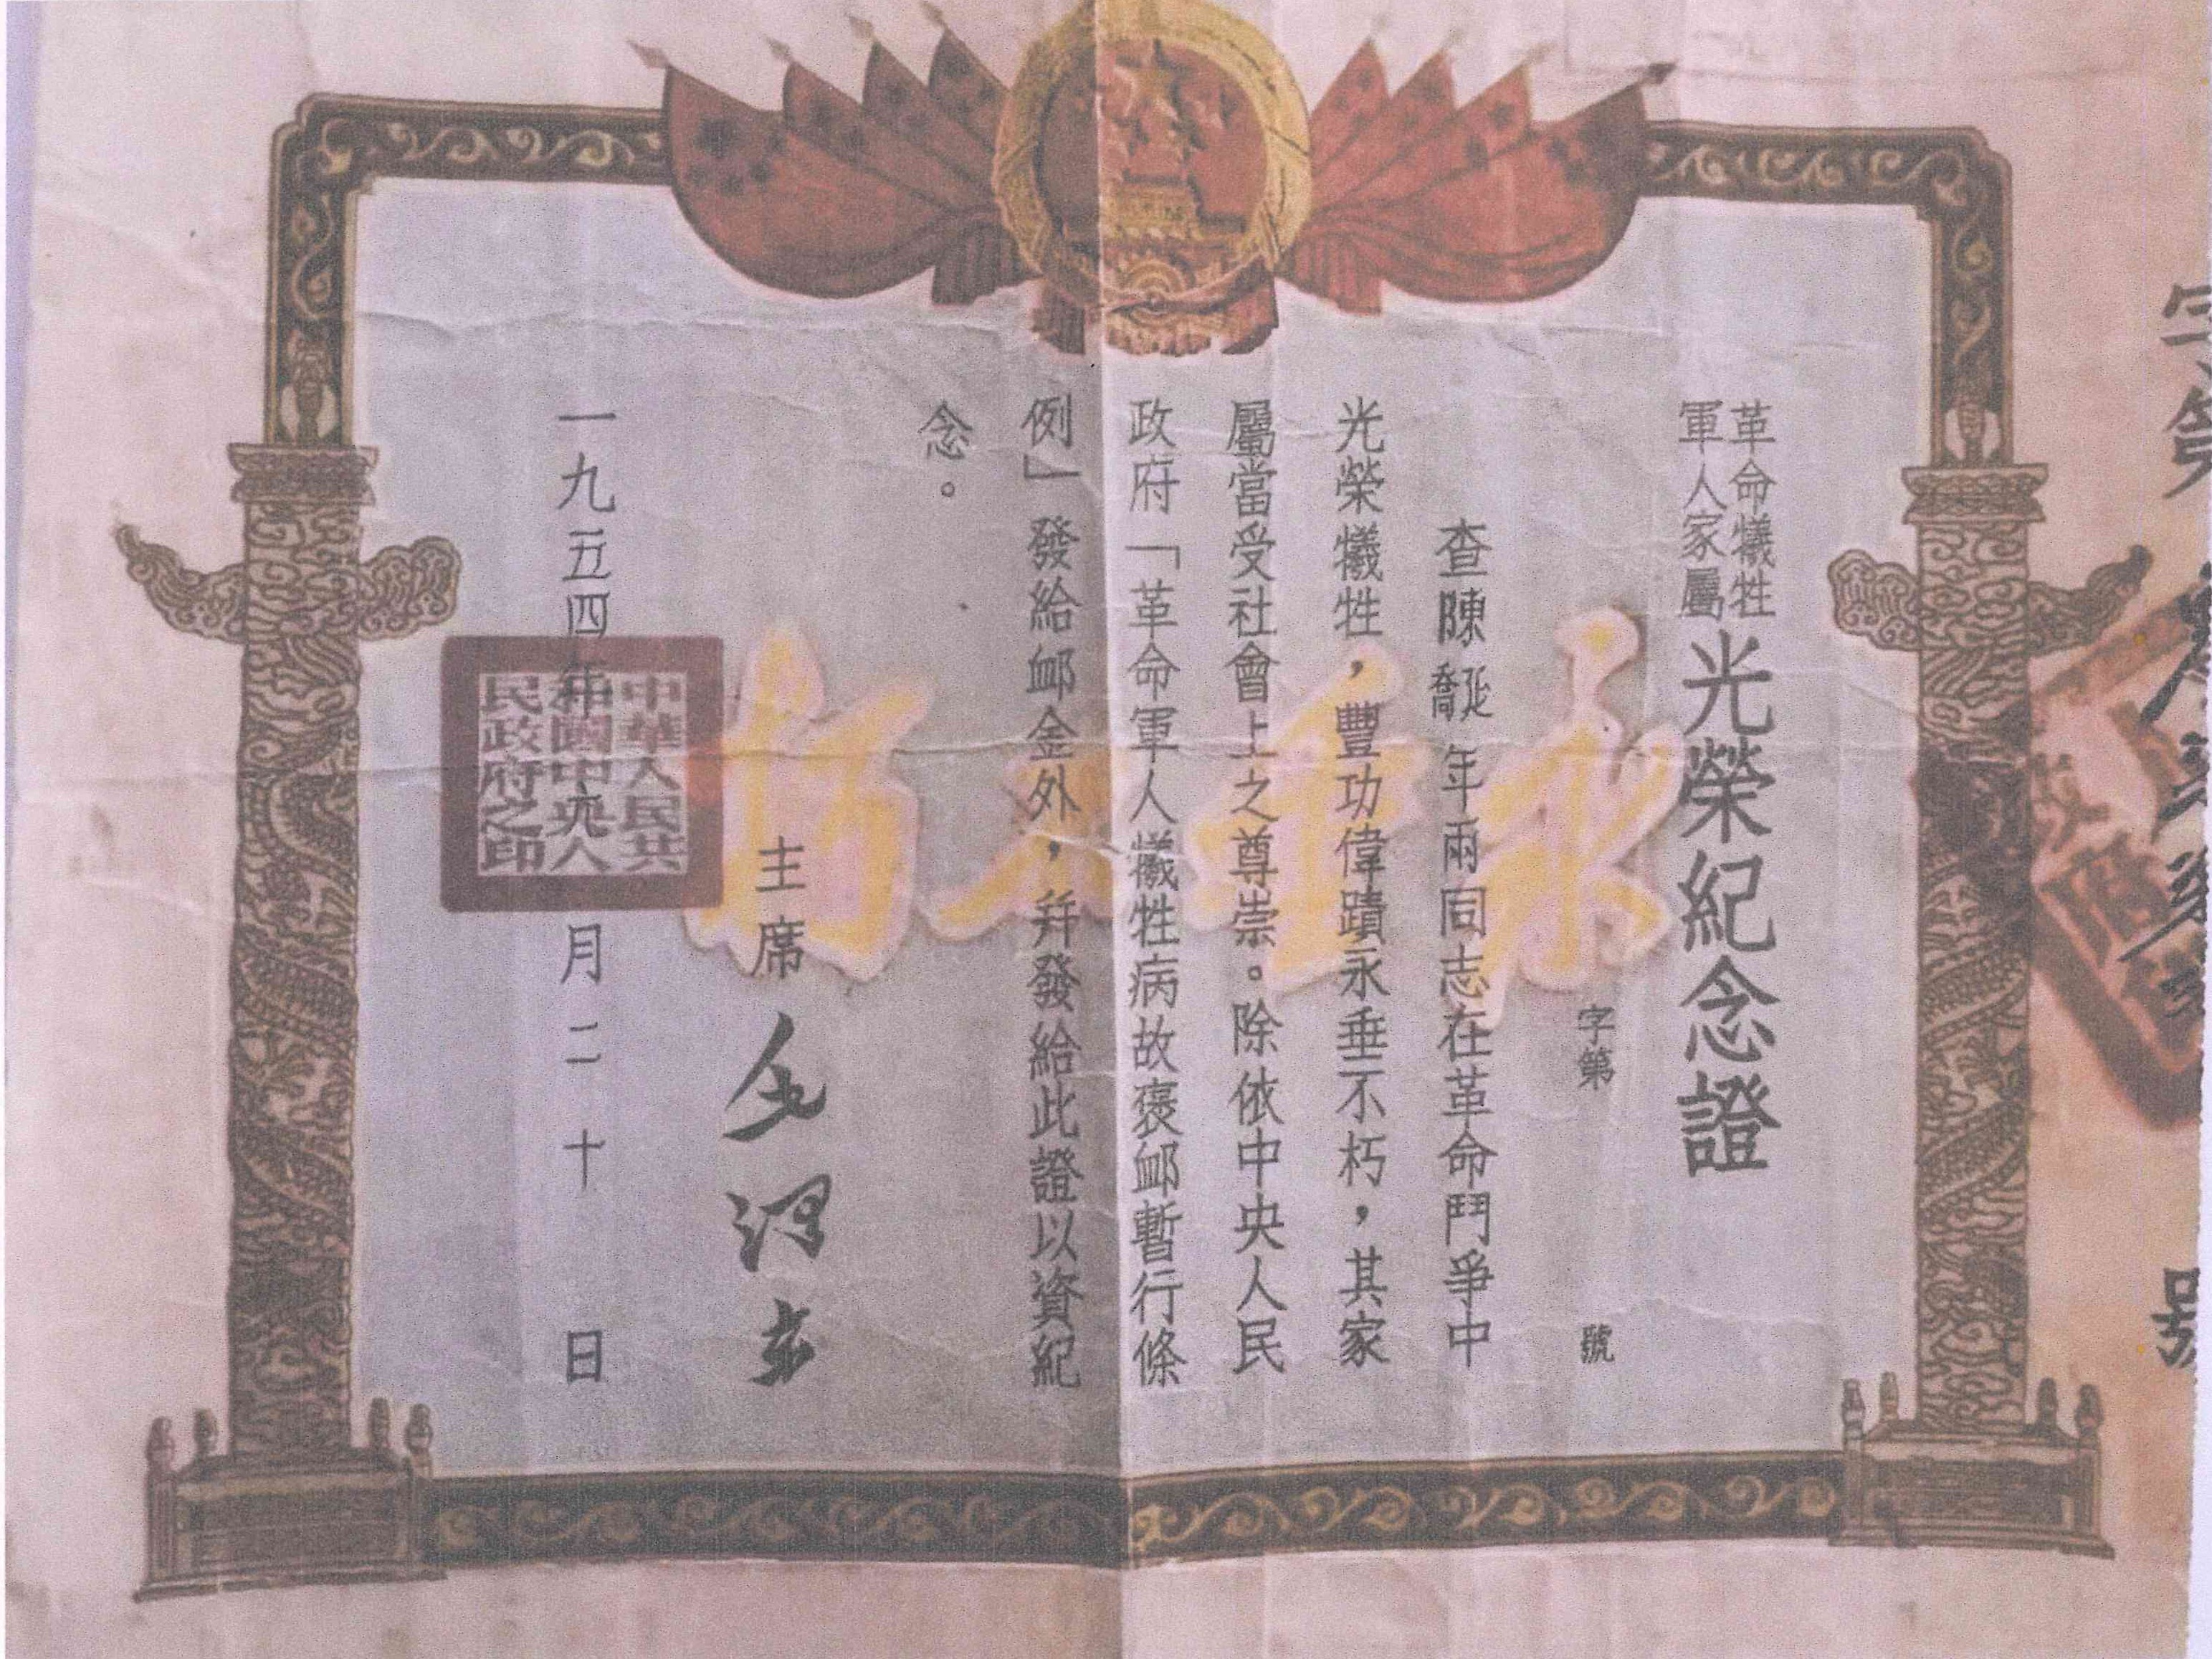 革命犧牲
軍人家屬
光榮紀念證
字第 號
查陳延
喬年兩同志在革命鬥爭中
光榮犧牲，豐功偉蹟永垂不朽，其家
屬當受社會上之尊崇。除依中央人民
政府「革命軍人犧牲病故褒卹暫行條
例」發給卹金外，幷發給此證以資紀
念。
主席 毛澤東
一九五四年 月二十 日
中華人民共
和國中央人
民政府之印
永垂不朽
字第
號